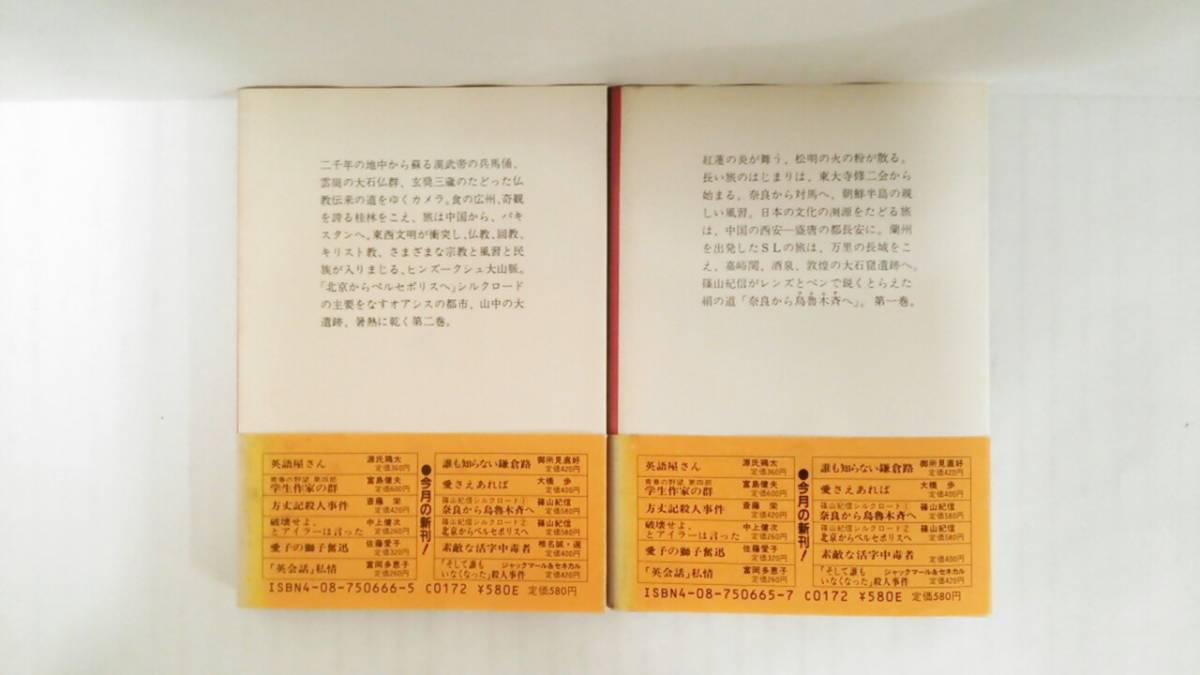 二千年の地中から蘇る漢武帝の兵馬俑、
雲崗の大石仏群、玄奘三蔵のたどった仏
教伝来の道をゆくカメラ。食の広州、奇観
を誇る桂林をこえ、旅は中国から、パキ
スタンへ。東西文明が衝突し、仏教、回教、
キリスト教、さまざまな宗教と風習と民
族が入りまじる、ヒンズークシュ大山脈。
「北京からペルセポリスへ」シルクロード
の主要をなすオアシスの都市、山中の大
遺跡、暑熱に乾く第二巻。
英語屋さん 源氏鶏太 定価360円
青春の野望 第四部
学生作家の群 富島健夫 定価600円
方丈記殺人事件 斎藤 栄 定価420円
破壊せよ、
とアイラーは言った 中上健次 定価260円
愛子の獅子奮迅 佐藤愛子 定価320円
「英会話」私情 富岡多恵子 定価260円
●今月の新刊!
誰も知らない鎌倉路 御所見直好 定価420円
愛さえあれば 大橋 歩 定価400円
篠山紀信シルクロード①
奈良から烏魯木斉へ 篠山紀信 定価580円
篠山紀信シルクロード②
北京からペルセポリスへ 篠山紀信 定価580円
素敵な活字中毒者 椎名誠・選 定価400円
「そして誰も
いなくなった」殺人事件 ジャックマール&セネカル 定価420円
ISBN4-08-750666-5 C0172 ¥580E 定価580円
紅蓮の炎が舞う、松明の火の粉が散る。
長い旅のはじまりは、東大寺修二会から
始まる。奈良から対馬へ、朝鮮半島の親
しい風習。日本の文化の溯源をたどる旅
は、中国の西安―盛唐の都長安に。蘭州
を出発したSLの旅は、万里の長城をこ
え、嘉峪関、酒泉、敦煌の大石窟遺跡へ。
篠山紀信がレンズとペンで鋭くとらえた
絹の道「奈良から烏魯木斉へ」。第一巻。
英語屋さん 源氏鶏太 定価360円
青春の野望 第四部
学生作家の群 富島健夫 定価600円
方丈記殺人事件 斎藤 栄 定価420円
破壊せよ、
とアイラーは言った 中上健次 定価260円
愛子の獅子奮迅 佐藤愛子 定価320円
「英会話」私情 富岡多恵子 定価260円
●今月の新刊!
誰も知らない鎌倉路 御所見直好 定価420円
愛さえあれば 大橋 歩 定価400円
篠山紀信シルクロード①
奈良から烏魯木斉へ 篠山紀信 定価580円
篠山紀信シルクロード②
北京からペルセポリスへ 篠山紀信 定価580円
素敵な活字中毒者 椎名誠・選 定価400円
「そして誰も
いなくなった」殺人事件 ジャックマール&セネカル 定価420円
ISBN4-08-750665-7 C0172 ¥580E 定価580円